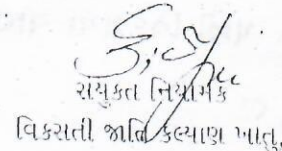 સંયુક્ત નિયામક
વિકસતી જાતિ કલ્યાણ ખાતુ,